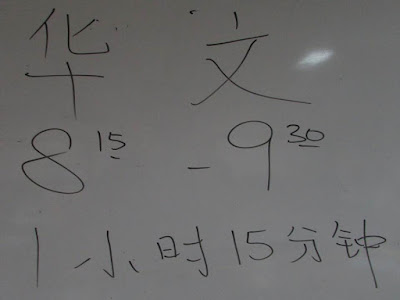 华文
8 15 - 9 30
1小时15分钟